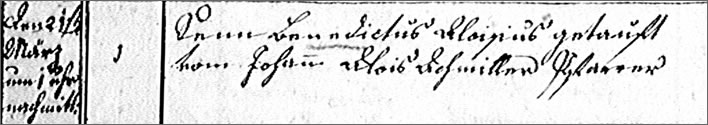 den 21ten
März
um 1 Uhr
nachmitt.
1
Benedictus Aloisius getauft
vom Johann Alois Schmiller Pfarrer